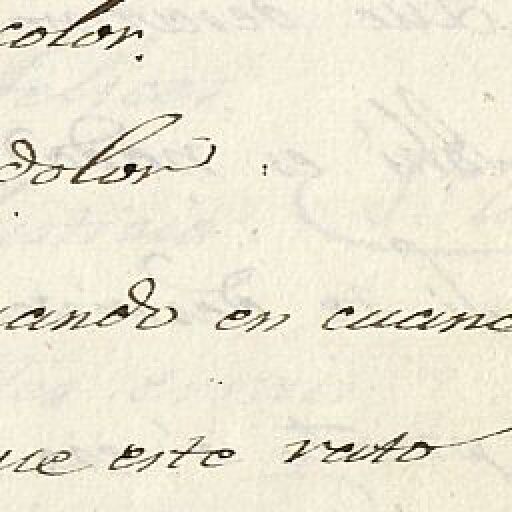 color.
dolor :
uando en cuand
ue este rato